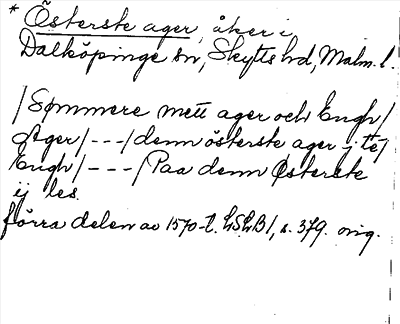 * Österste ager, åker i
Dalköpinge sn, Skytts hd, Malm. l.
/Sommere mett ager och Engh/
Ager/---/denn österste ager j te/
Engh/---/Paa denn Østerste
ij les.
förra delen av 1570-t. LSLB I, s. 379. orig.